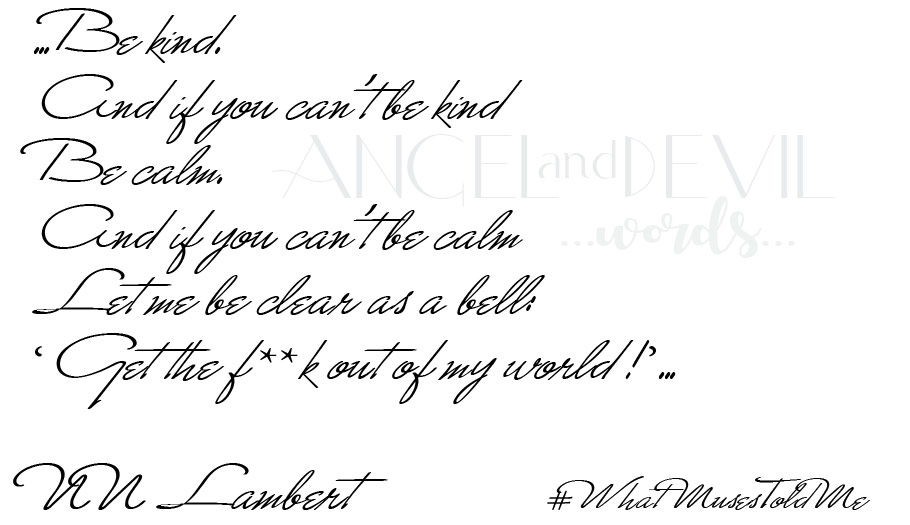 ...Be kind.
And if you can't be kind
Be calm.
ANGEL and DEVIL
And if you can't be calm
...words...
Let me be clear as a bell:
‘ Get the f**k out of my world !’...
NN Lambert
#WhatMusesToldMe